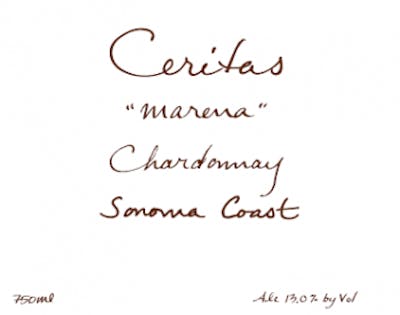 Ceritas
"marena"
Chardonnay
Sonoma Coast
750ml
Alc 13.0% by Vol